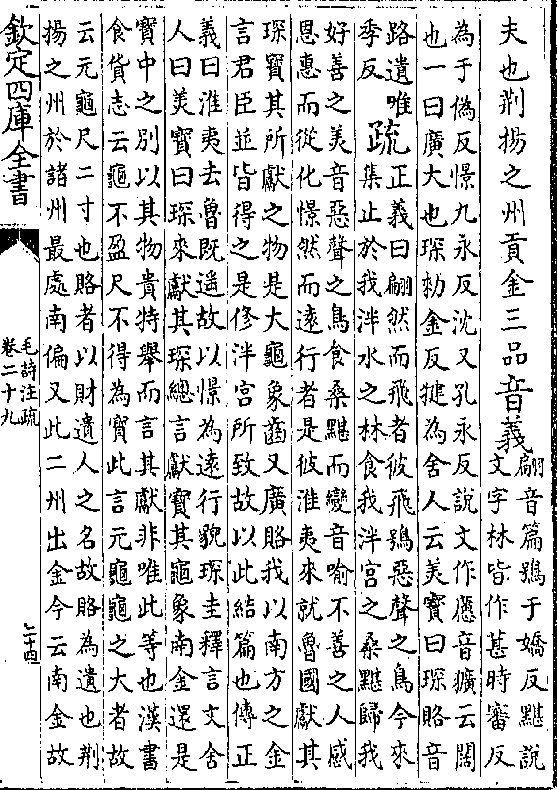 夫也荆揚之州貢金三品
音義
翩音篇鴞于嬌反黮說
文字林皆作葚時審反
為于偽反憬九永反沈又孔永反說文作慮音獷云闊
也一曰廣大也琛勑金反犍為舍人云美寶曰琛賂音
路遺唯
季反
疏
正義曰翩然而飛者彼飛鴞惡聲之鳥今來
集止於我泮水之林食我泮宫之桑黮歸我
好善之美音惡聲之鳥食桑黮而變音喻不善之人感
恩惠而從化憬然而遠行者是彼淮夷來就魯國獻其
琛寶其所獻之物是大龜象齒又廣賂我以南方之金
言君臣並皆得之是修泮宫所致故以此結篇也傳正
義曰淮夷去魯既遥故以憬為遠行貌琛圭釋言文舍
人曰美寶曰琛來獻其琛總言獻寶其龜象南金還是
寶中之别以其物貴特舉而言其獻非唯此等也漢書
食貨志云龜不盈尺不得為寶此言元龜龜之大者故
云元龜尺二寸也賂者以財遺人之名故賂為遺也荆
揚之州於諸州最處南偏又此二州出金今云南金故
欽定四庫全書
毛詩注疏
卷二十九
七十四